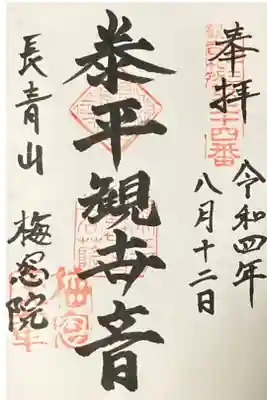 奉拝
令和四年
八月十二日
泰平観世音
長青山
梅窓院